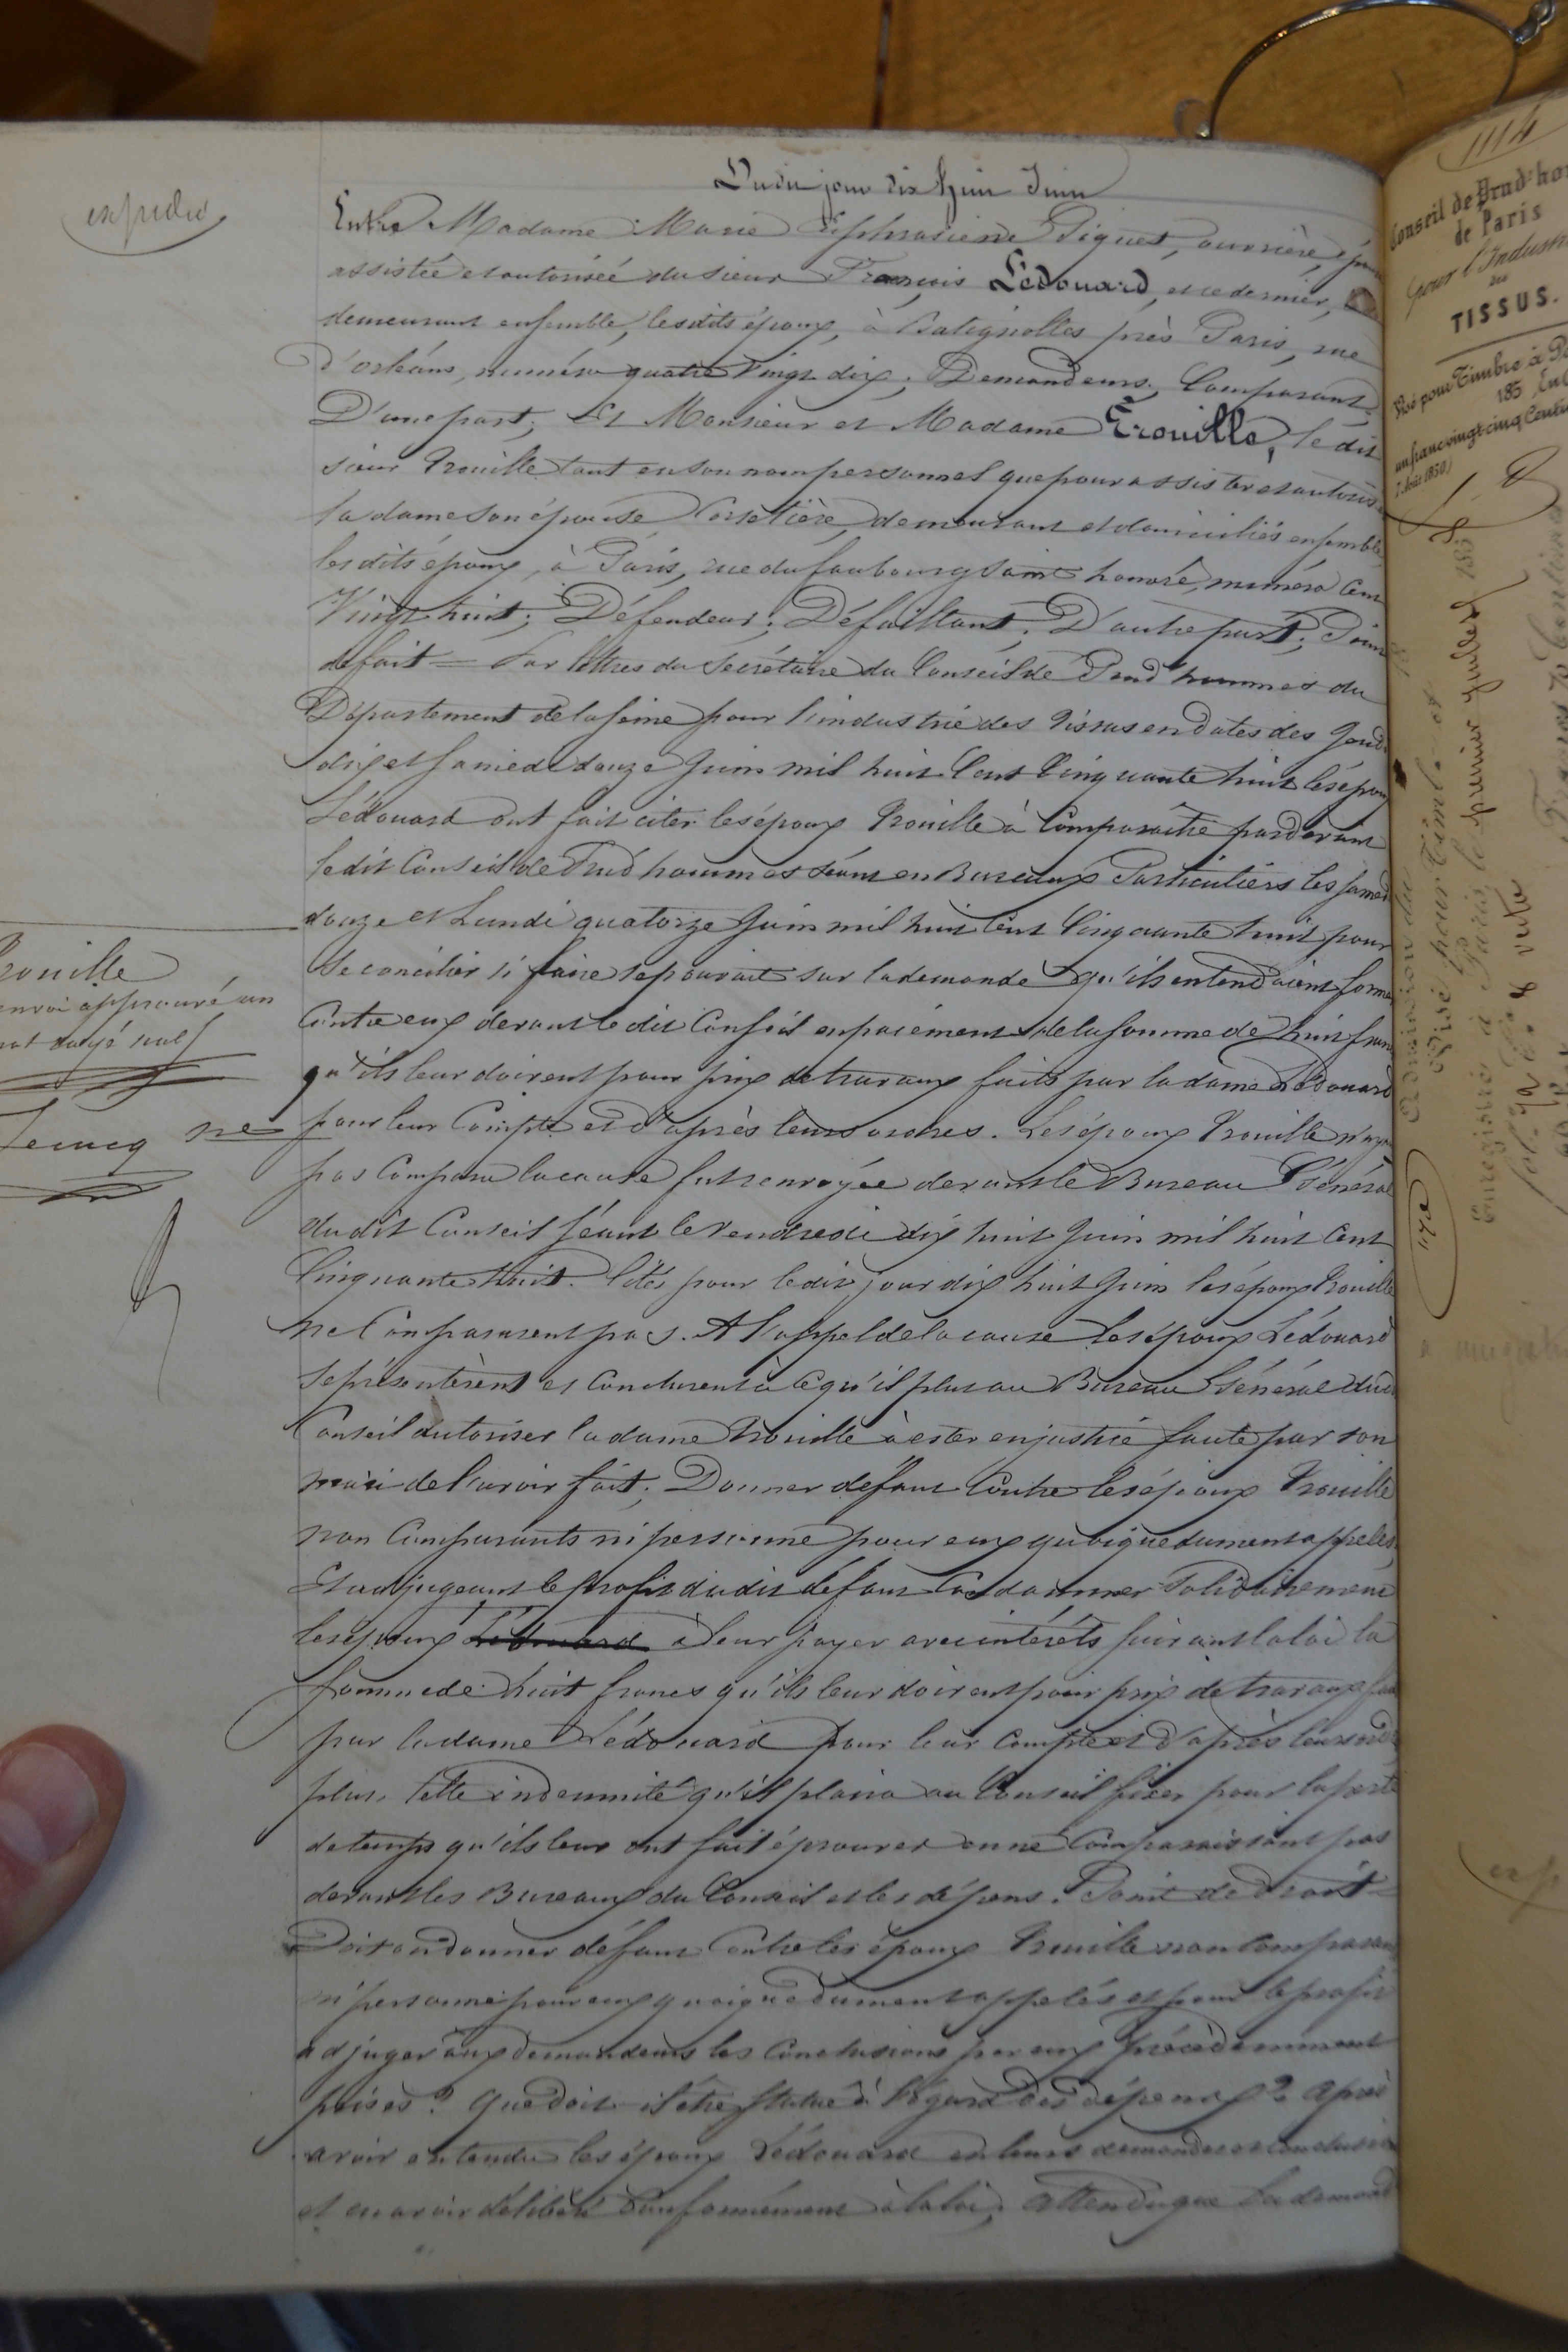 expédié
Dudit jour dix huit Juin
Entre Madame Marie Euphrasienne Piquet, ouvrière, épouse
assistée et autorisée du sieur François Lédouard, et ce dernier,
demeurant ensemble, lesdits époux, à Batignolles près Paris, rue
d'orléans, numéro quatre vingt dix; Demandeurs; Comparant;
D'une part; Et Monsieur et Madame Trouille, le dit
sieur Trouille tant en son nom personnel que pour assister et autoriser
la dame son épouse Corsetière, demeurant et domiciliés ensemble
les dits époux, à Paris, rue du faubourg saint honoré, numéro cent
Vingt huit; Défendeur; Défaillant; D'autre part; Point
de fait = Par lettres du secrétaire du Conseil de Prud'hommes du
Département de la seine pour l'industrie des Tissus en dates des Jeudi
dix et samedi douze Juin mil huit Cent Cinquante huit les époux
Lédouard ont fait citer les époux Trouille à Comparaître par devant
ledit Conseil de Prud'hommes séant en Bureaux Particuliers les samedi
douze et Lundi quatorze Juin mil huit Cent Cinquante huit pour
se concilier si faire se pouvait sur la demande qu'ils entendaient former
Contre eux devant le dit Conseil en paiement de la somme de huit francs
qu'ils leur doivent pour prix de travaux faits par la dame Lédouard
pour leur Compte et d'après leurs ordres. Les époux Trouille n'ayant
pas Comparu la cause fut renvoyée devant le Bureau Général
dudit Conseil séant le Vendredi dix huit Juin mil huit Cent
Cinquante huit. Cités pour ledit jour dix huit Juin les époux Trouille
ne Comparurent pas. A l'appel de la cause les époux Lédouard
se présentèrent et Conclurent à ce qu'il plut au Bureau Général dudit
Conseil autoriser la dame Trouille à ester en justice faute par son
mari de l'avoir fait; Donner défaut Contre les époux Trouille
non Comparants ni personne pour eux quoique dument appelés;
Et adjugeant le profit dudit défaut Condamner solidairement
les époux Lédouard à leur payer avec intérêts suivant la loi la
somme de huit francs qu'ils leur doivent pour prix de travaux faits
par la dame Lédouard pour leur Compte et d'après leurs ordres
plus, telle indemnité qu'il plaira au Conseil fixer pour la perte
de temps qu'ils leur ont fait éprouver en ne Comparaissant pas
devant les Bureaux du Conseil et les dépens. Point de droit =
Doit on donner défaut Contre les époux Trouille non Comparants
ni personne pour eux quoique dument appelés et pour le profit
adjuger aux demandeurs les Conclusions par eux précédemment
prises? Que doit-il être statué à l'égard des dépens? Après
avoir entendu les époux Lédouard en leurs demandes et Conclusions
et en avoir délibéré Conformément à la loi; attendu que la demande
Trouille
envoi approuvé un
mot rayé nul
Lecucq
1114
Conseil de Prud'hommes
de Paris
pour l'Industrie
des
TISSUS.
Visé pour Timbre à Paris
185
un franc vingt cinq Centimes
Visé pour Timbre et
Enregistré à Paris le premier Juillet 185